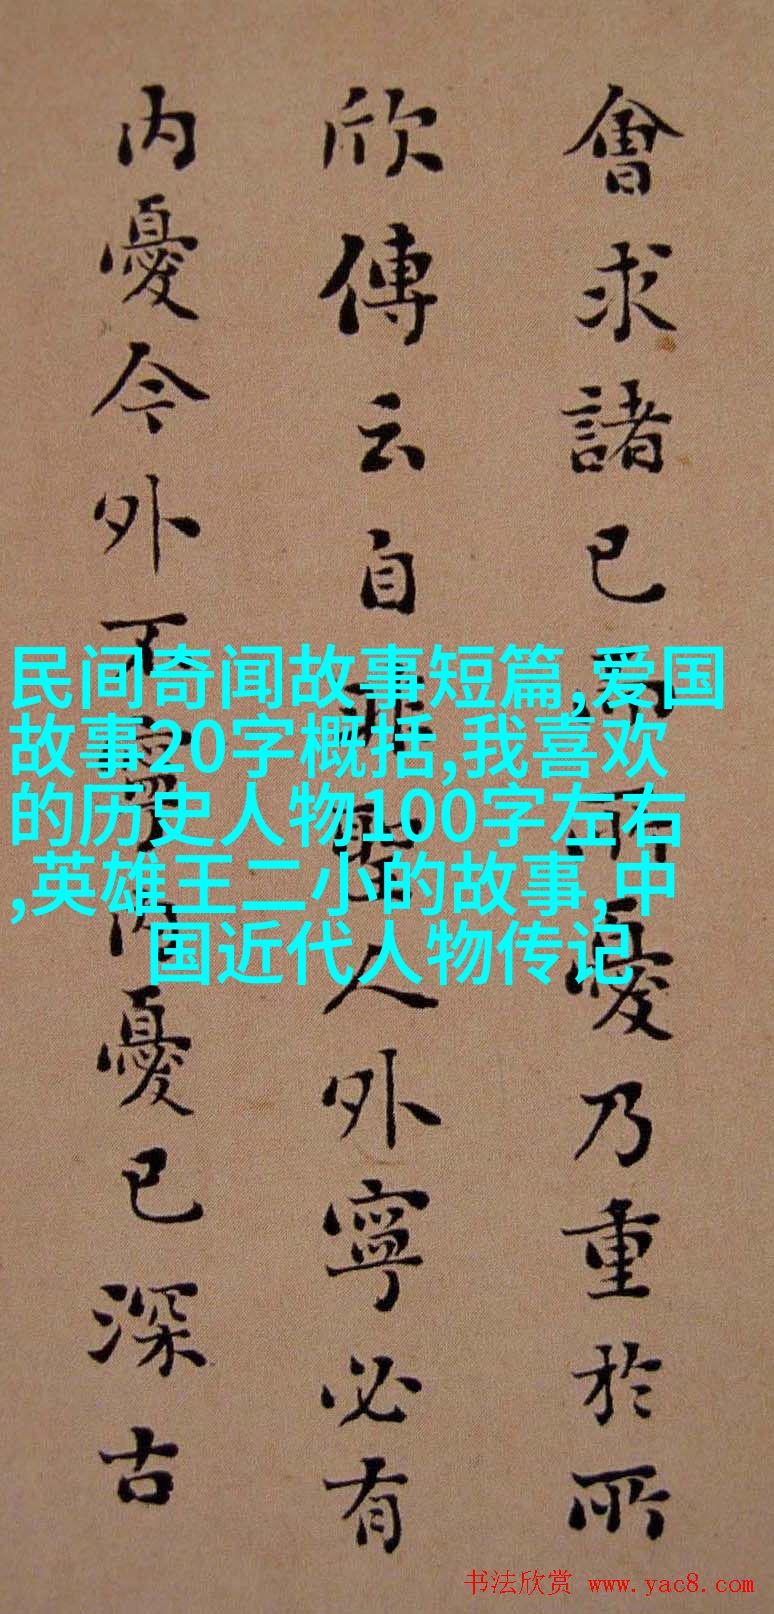 會求諸已而所憂乃重於所
欣傳云自非聖人外寧必有
内憂今外不寧内憂已深古
民间奇闻故事短篇,爱国
故事20字概括,我喜欢
的历史人物100字左右
,英雄王二小的故事,中
国近代人物传记
书法欣赏 www.yac8.com